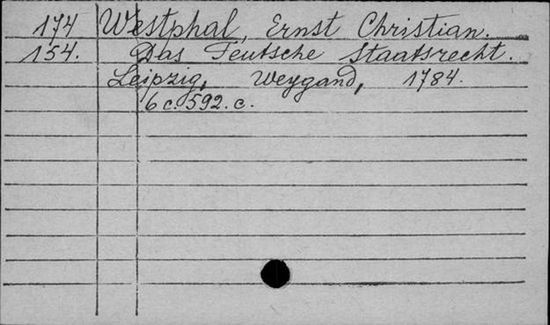 174 Westphal, Ernst Christian.
154. Das Teutsche Staatsrecht.
Leipzig, Weygand, 1784.
6 c. 592. c.